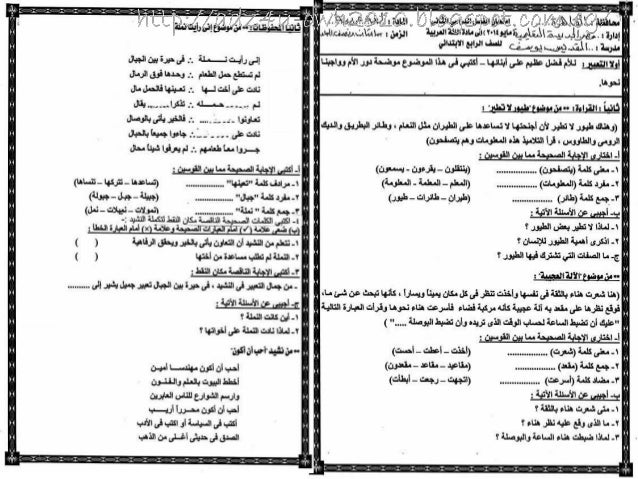 محافظة
امتحان الفصل الدراسى الثانى
مايو ٢٠١٤ فى مادة اللغة العربية
للصف الرابع الابتدائى
إدارة : مصر الجديدة التعليمية
مدرسة : القديس يوسف
الزمن :
أولا التعبير : للأم فضل عظيم على أبنائها – أكتبى فى هذا الموضوع موضحة دور الأم وواجبنا
نحوها.
ثانياً : القراءة : ** من موضوع "طيور لا تطير" :
(وهناك طيور لا تطير لأن أجنحتها لا تساعدها على الطيران مثل النعام ، وطائر البطريق والديك
الرومى والطاووس ، قرأ التلاميذ هذه المعلومات وهم يتصفحون)
أ- اختارى الإجابة الصحيحة مما بين القوسين :
١- معنى كلمة (يتصفحون) .......... (ينتقلون – يقرءون - يسمعون)
٢- مفرد كلمة (المعلومات) .......... (المعلم – المعلمة - المعلومة)
٣- جمع كلمة (طائر) .......... (طيران – طائرات – طيور)
ب- أجيبى عن الأسئلة الأتية :
١- لماذا لا تطير بعض الطيور ؟
٢- اذكرى أهمية الطيور للإنسان ؟
ج- ما الصفات التي تشترك فيها الطيور ؟
** من موضوع "الآلة العجيبة" :
(هنا شعرت هناء بالثقة فى نفسها وأخذت تنظر فى كل مكان يميناً ويساراً ، كأنها تبحث عن شئ ما،
فوقع نظرها على مقعد به آلة عجيبة كأنه مركبة فضاء فأسرعت هناء نحوها وقرأت العبارة التالية
"عليك أن تضبط الساعة لحساب الوقت الذى تريده وأن تضبط البوصلة ....." )
أ- اختارى الإجابة الصحيحة مما بين القوسين :
١- معنى كلمة (شعرت) .......... (أخذت – أعطت – أحست)
٢- جمع كلمة (مقعد) .......... (مقاعيد – مقاعد – مقعدون)
٣- مضاد كلمة (أسرعت) .......... (اتجهت – رجعت – أبطأت)
ب- أجيبى عن الأسئلة الأتية :
١- متى شعرت هناء بالثقة ؟
٢- ما الذى وقع عليه نظر هناء ؟
٣- لماذا ضبطت هناء الساعة والبوصلة ؟
ثالثاً المحفوظات : ** من موضوع إنى رأيت نملة
إنى رأيت نملة ∴ فى حيرة بين الجبال
لم تستطع حمل الطعام ∴ وحدها فوق الرمال
نادت على أخت لها ∴ تعينها فالحمل مال
لم .......... حمله ∴ تذكرا .......... يقال
تعاونوا .......... ∴ فالخير يأتى بالوصال
نادت على .......... ∴ جاءوا جميعاً بالحبال
جروا معاً طعامهم ∴ لم يعرفوا شيئاً محال
أ- أكتبى الإجابة الصحيحة مما بين القوسين :
١- مرادف كلمة "تعينها" .......... (تساعدها – تتركها – تنساها)
٢- مفرد كلمة "جبال" .......... (جبيلة – جبل – جبولة)
٣- جمع كلمة "نملة" .......... (نمولات – نميلات – نمل)
٤- اكتبى الكلمات الصحيحة الناقصة مكان النقط لتكملة النشيد :
(ب) ضعى علامة (✓) أمام العبارات الصحيحة وعلامة (×) أمام العبارة الخطأ :
١- نتعلم من النشيد أن التعاون يأتى بالخير ويحقق الرفاهية ( )
٢- النملة لم تطلب مساعدة من أختها ( )
٣- أكتبى الإجابة الناقصة مكان النقط :
- من جمال التعبير فى النشيد ، فى حيرة بين الجبال تعبير جميل يشير إلى ..........
ج- أجيبى عن الأسئلة الأتية :
١- أين كانت النملة ؟
٢- لماذا نادت النملة على أخواتها ؟
** من نشيد "أحب أن أكون"
أحب أن أكون مهندسا أمين
أخطط البيوت بالعلم والفنون
وارسم الشوارع للناس العابرين
أحب أن أكون محرراً أريب
أكتب فى السياسة أو اكتب فى الأدب
الصدق فى حديثى أغلى من الذهب